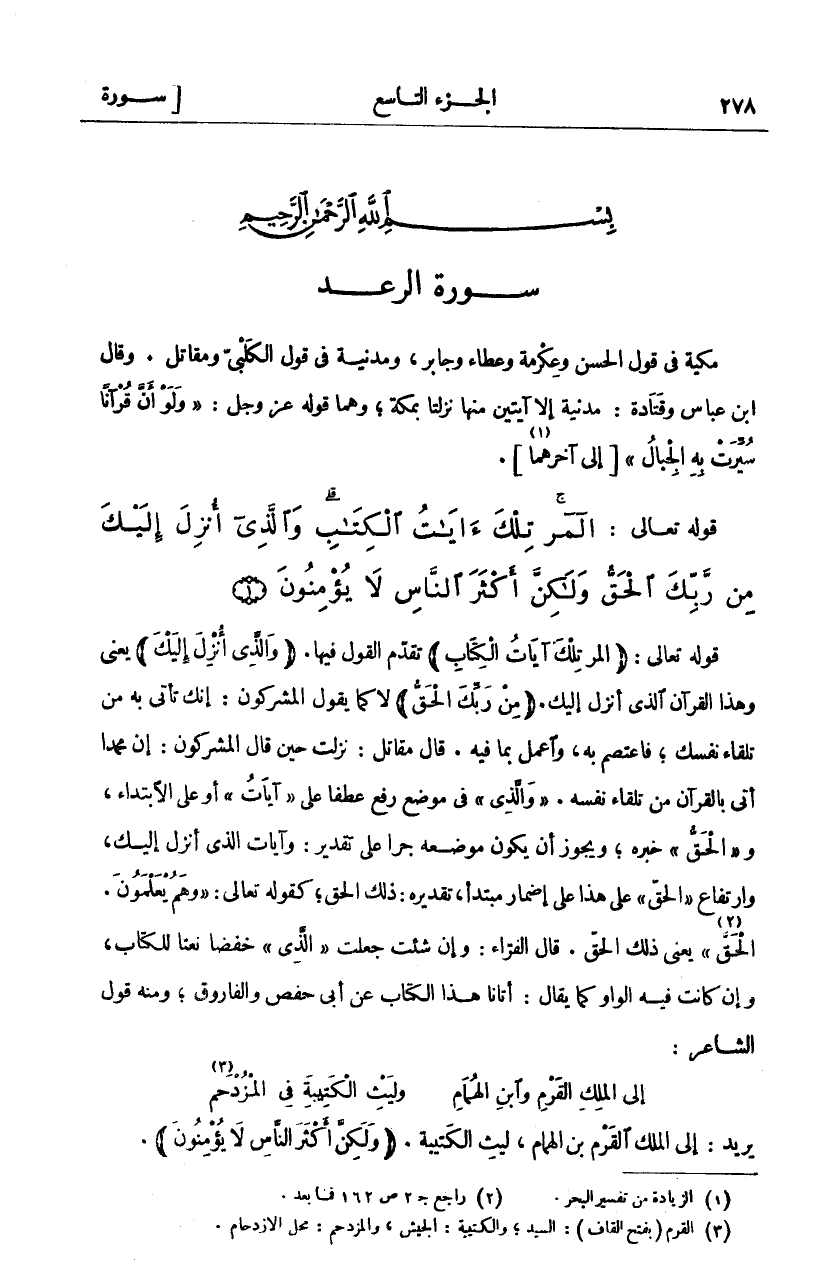 ٢٧٨ الجزء التاسع [ سورة
بِسْمِ ٱللَّهِ ٱلرَّحْمَٰنِ ٱلرَّحِيمِ
سورة الرعد
مكية فى قول الحسن وعِكْرمة وعطاء وجابر ، ومدنية فى قول الكَلْبيّ ومقاتل . وقال
ابن عباس وقَتَادة : مدنية إلا آيتين منها نزلتا بمكة ؛ وهما قوله عز وجل : « وَلَوْ أَنَّ قُرْآنًا
سُيِّرَتْ بِهِ الْجِبَالُ » [ إلى آخرهما ](١) .
قوله تعالى : الٓمٓر ۚ تِلْكَ ءَايَٰتُ ٱلْكِتَٰبِ ۗ وَٱلَّذِىٓ أُنزِلَ إِلَيْكَ
مِن رَّبِّكَ ٱلْحَقُّ وَلَٰكِنَّ أَكْثَرَ ٱلنَّاسِ لَا يُؤْمِنُونَ ١
قوله تعالى : ( المر تِلْكَ آيَاتُ الْكِتَابِ ) تقدّم القول فيها. ( وَالَّذِى أُنْزِلَ إِلَيْكَ ) يعنى
وهذا القرآن الذى أنزل إليك. ( مِنْ رَبِّكَ الْحَقُّ ) لا كما يقول المشركون : إنك تأتى به من
تلقاء نفسك ؛ فاعتصم به ، وٱعمل بما فيه . قال مقاتل : نزلت حين قال المشركون : إن محمدا
أتى بالقرآن من تلقاء نفسه . « وَالَّذِى » فى موضع رفع عطفا على « آيَاتُ » أو على الٱبتداء ،
و « الْحَقُّ » خبره ؛ ويجوز أن يكون موضعه جرا على تقدير : وآيات الذى أنزل إليك ،
وارتفاع « الحقّ » على هذا على إضمار مبتدأ ، تقديره : ذلك الحق ؛ كقوله تعالى : « وَهُمْ يَعْلَمُونَ .
الْحَقُّ »(٢) يعنى ذلك الحقّ . قال الفرّاء : وإن شئت جعلت « الَّذِى » خفضا نعتا للكتاب ،
وإن كانت فيه الواو كما يقال : أتانا هذا الكتاب عن أبى حفص والفاروق ؛ ومنه قول
الشاعر :
إلى المَلِكِ القَرْمِ وٱبنِ الهُمَامِ وليْثِ الْكَتِيبَةِ فِى الْمُزْدَحَمْ(٣)
يريد : إلى الملك القَرْم بن الهمام ، ليث الكتيبة . ( وَلَكِنَّ أَكْثَرَ النَّاسِ لَا يُؤْمِنُونَ ) .
(١) الزيادة من تفسير البحر . (٢) راجع جـ ٢ ص ١٦٢ فما بعد .
(٣) القرم ( بفتح القاف ) : السيد ؛ والكتيبة : الجيش ، والمزدحم : محل الازدحام .